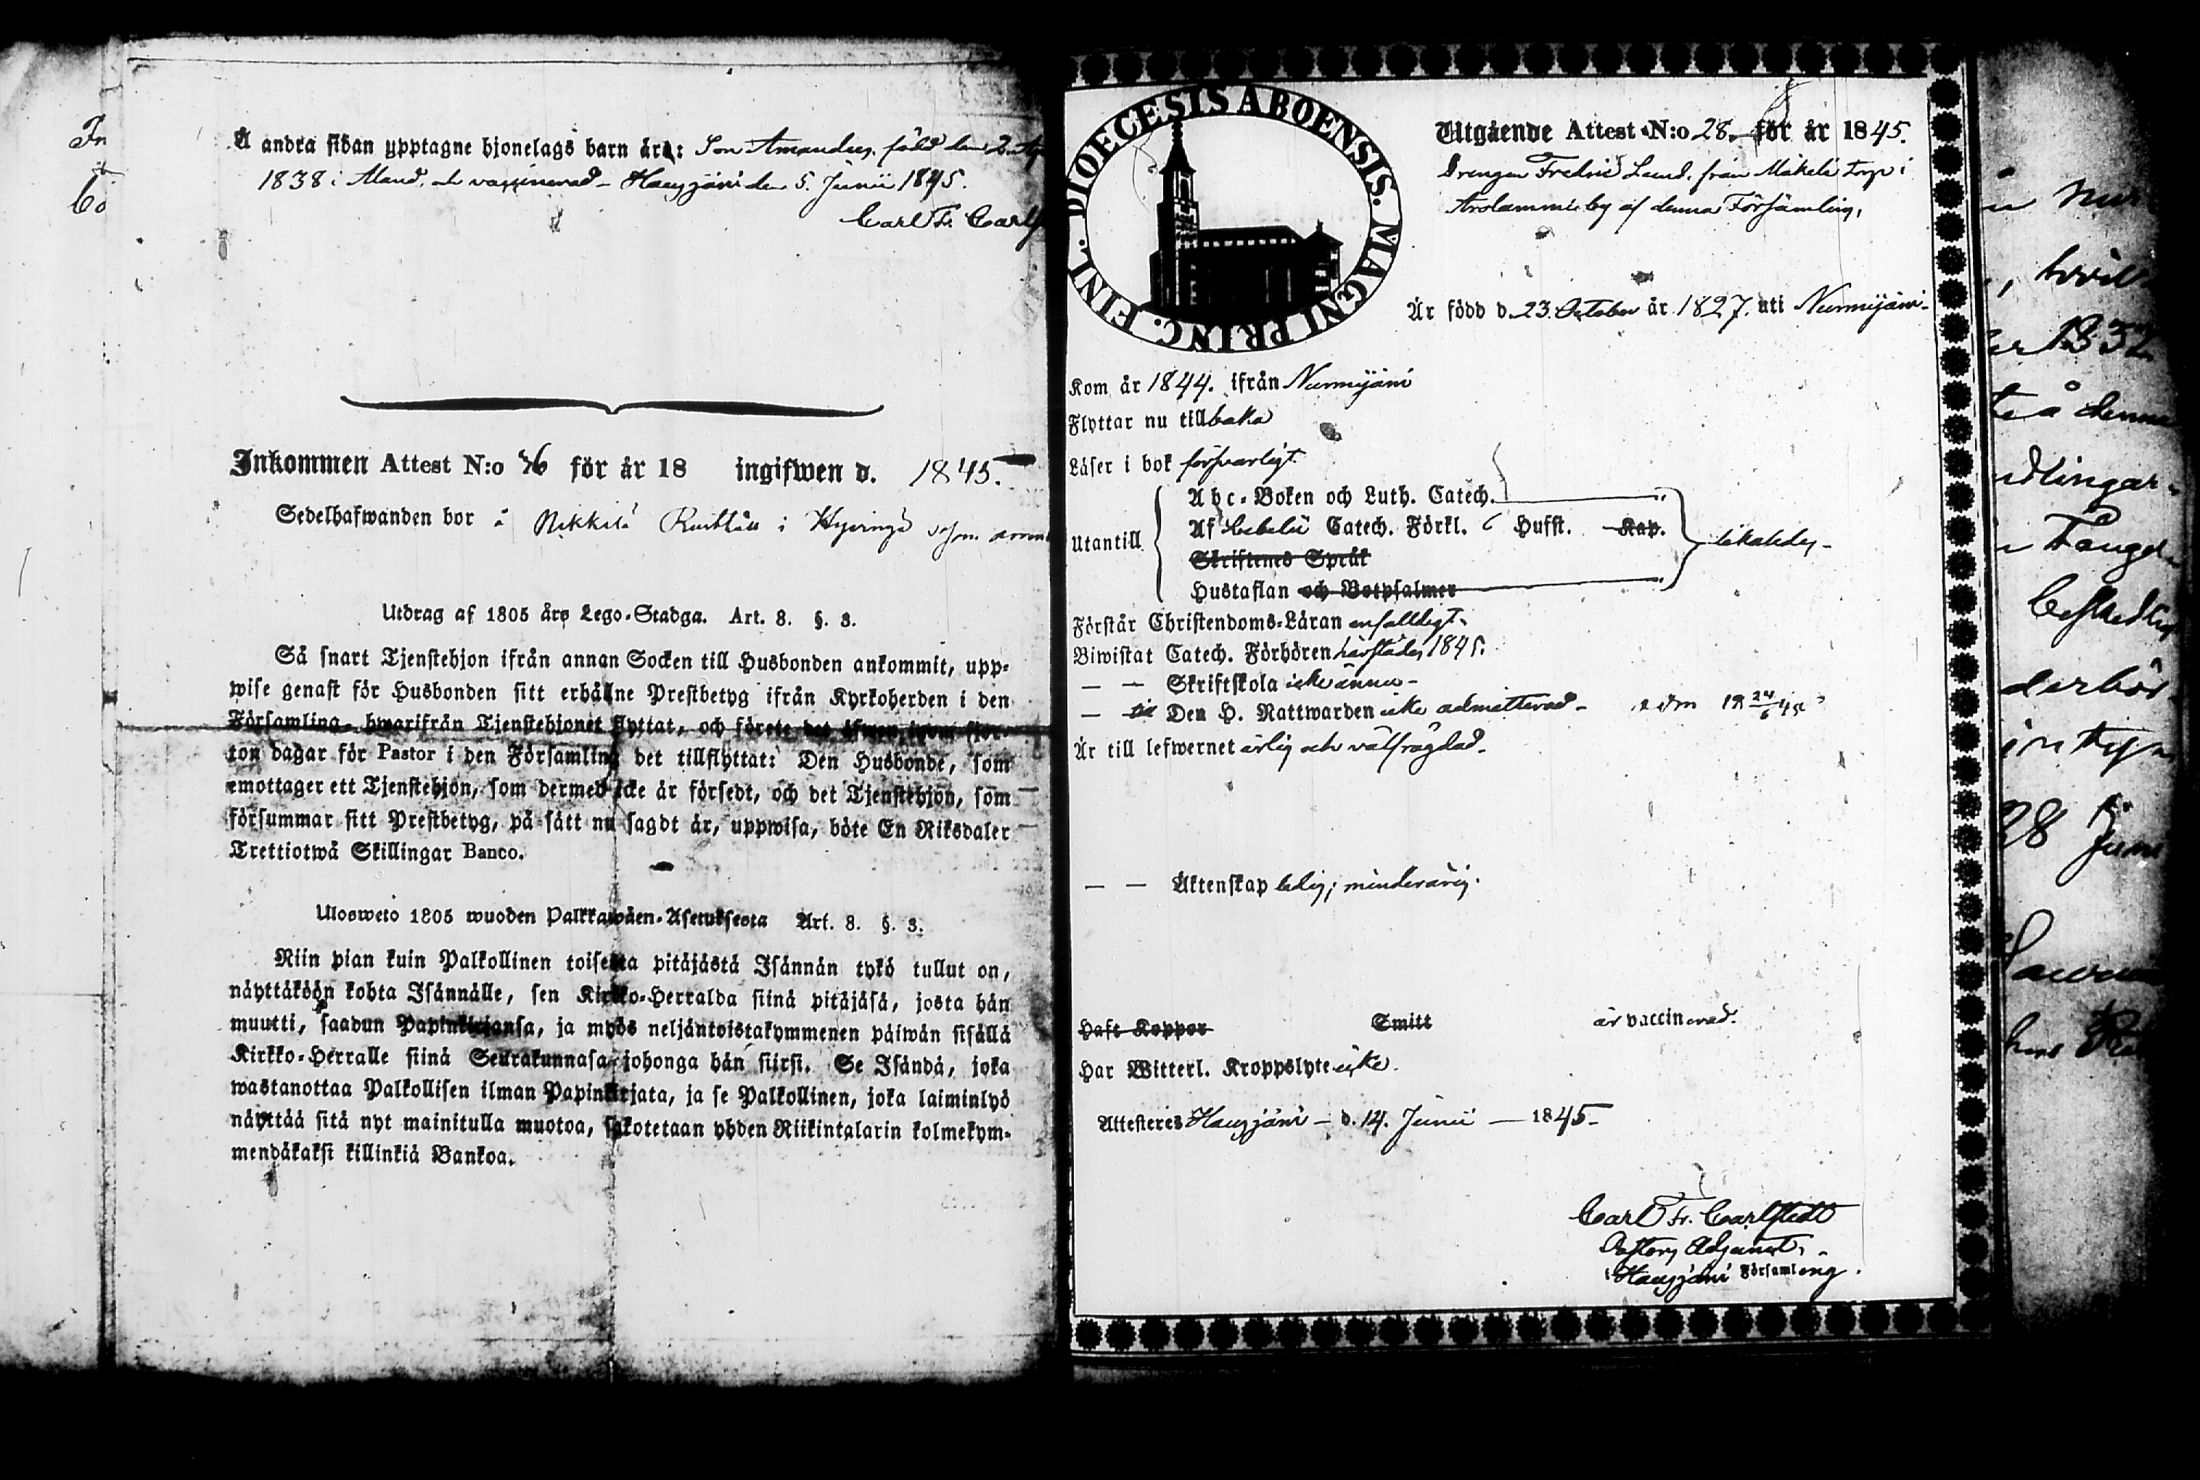 Å andra sidan upptagne hjonelags barn äro: Son Amandus, född den 2.
1838 i Åland, och vaccinerad – Hausjärvi den 5. Junii 1845.
Carl Fr.
Inkommen Attest N:o 76 för år 18 ingifwen d. 1845.
Sedelhafwanden bor å Nikkilä Rusthåll i Hyvinge som
Utdrag af 1805 års Lego-Stadga. Art. 8. §. 3.
Så snart Tjenstehjon ifrån annan Socken till Husbonden ankommit, upp-
wise genast för Husbonden sitt erhållne Prestbetyg ifrån Kyrkoherden i den
Församling, hwarifrån Tjenstehjonet flyttat, och förete det äfwen inom fjor-
ton dagar för Pastor i den Församling det tillflyttat: Den Husbonde, som
emottager ett Tjenstehjon, som dermed icke är försedt, och det Tjenstehjon, som
försummar sitt Prestbetyg, på sätt nu sagdt är, uppwisa, böte En Riksdaler
Trettiotwå Skillingar Banco.
Ulosweto 1805 wuoden Palkkawäen-Asetuksesta Art. 8. §. 3.
Niin pian kuin Palkollinen toisesta pitäjästä Isännän tykö tullut on,
näyttäköön kohta Isännälle, sen Kirkko-Herralda siinä pitäjäsä, josta hän
muutti, saadun Papinkirjansa, ja myös neljäntoistakymmenen päiwän sisällä
Kirkko-Herralle siinä Seurakunnasa johonga hän siirsi. Se Isändä, joka
wastanottaa Palkollisen ilman Papinkirjata, ja se Palkollinen, joka laiminlyö
näyttää sitä nyt mainitulla muotoa, sakotetaan yhden Riikintalarin kolmekym-
mendäkaksi killinkiä Bankoa.
DIOECESIS ABOENSIS. MAGNI PRINC. FINL.
Utgående Attest N:o 28. för år 1845.
Drengen Fredric Lund. från Mäkelä torp i
Arolammi by af denna Församling,
Är född d. 23. October år 1827. uti Nurmijärvi.
Kom år 1844. ifrån Nurmijärvi
Flyttar nu tillbaka
Läser i bok försvarligt
Utantill
Abc-Boken och Luth. Catech.
Af Catech. Förkl. 6 Hufst. Kap.
Skriftenes Språk
Hustaflan och Botpsalmer
likaledes –
Förstår Christendoms-Läran enfalldigt.
Biwistat Catech. Förhören härstädes 1845.
— — Skriftskola icke ännu –
— Den H. Nattwarden icke admitterad – 18 24/6 45
Är till lefwernet ärlig och välfrägdad.
— — Äktenskap ledig; minderårig.
Haft Koppor Smitt är vaccinerad.
Har Witterl. Kroppslyte icke.
Attesteres Hausjärvi – d. 14. Junii — 1845.
Carl Fr. Carlstedt
Pastors Adjunct,
i Hausjärvi Församling.
1832
å denna
28 Juni